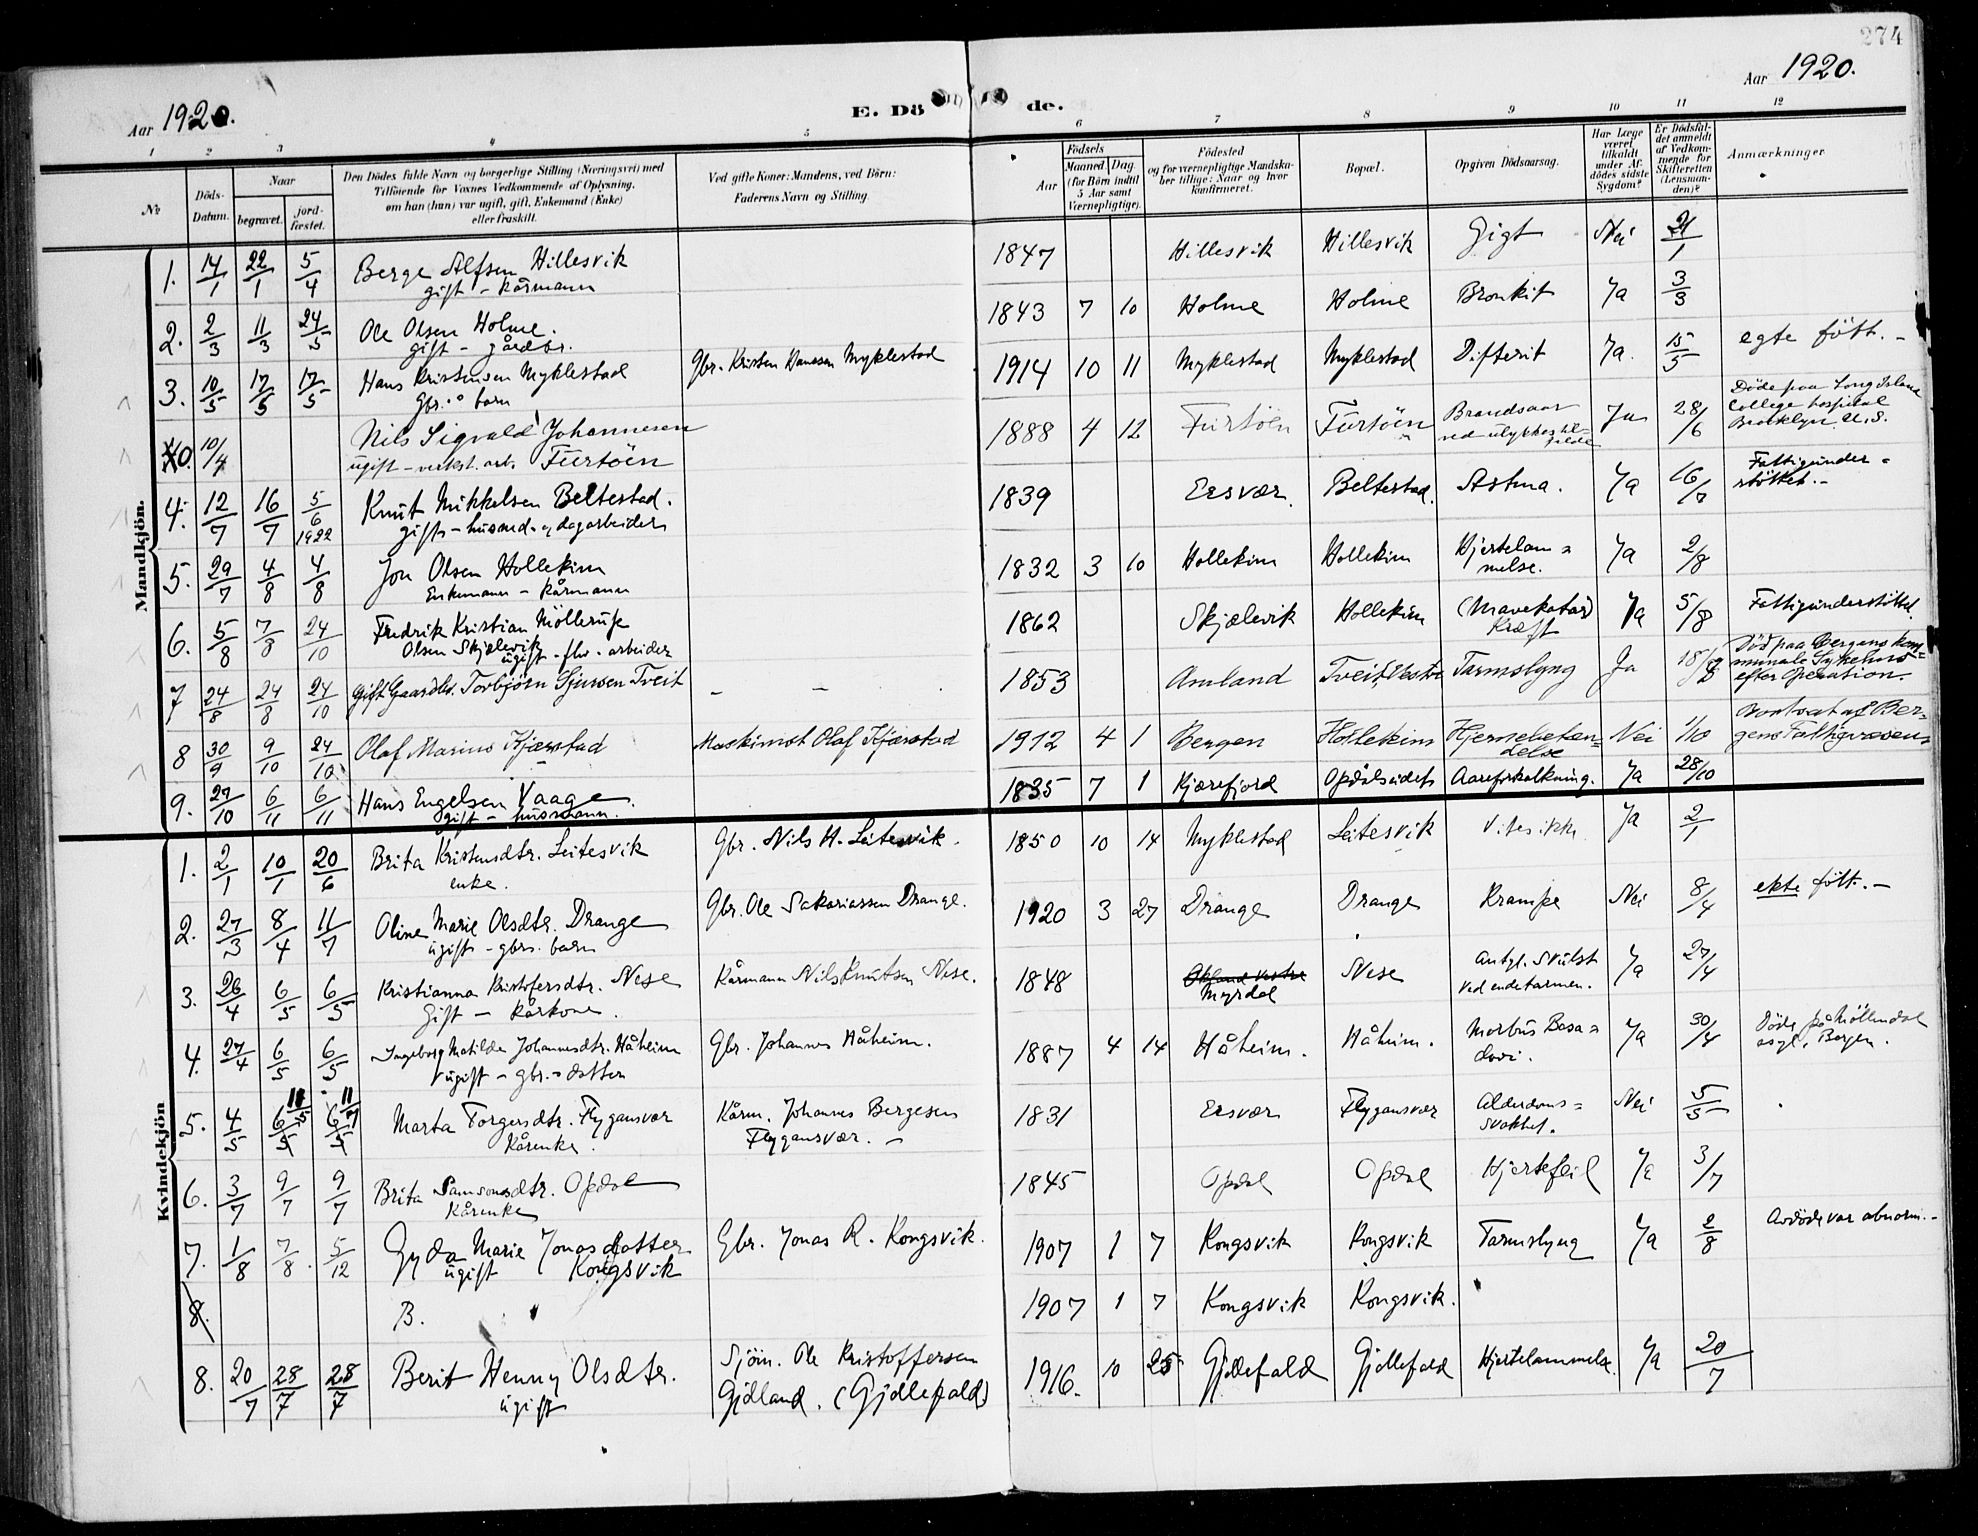 274
Aar 1920.
E. Dö de.
Aar 1920.
1 2 3 4 5 6 7 8 9 10 11 12
No
Döds-Datum.
Naar
begravet.
jord-fæstet.
Den Dödes fulde Navn og borgerlige Stilling (Næringsvei) med
Tilföiende for Voxnes Vedkommende af Oplysning,
om han (hun) var ugift, gift, Enkemand (Enke)
eller fraskilt.
Ved gifte Koner: Mandens, ved Börn:
Faderens Navn og Stilling.
Aar
Födsels
Maaned Dag
(for Börn indtil
5 Aar samt
Værnepligtige).
Födested
og for værnepligtige Mandska-
ber tillige: Naar og hvor
konfirmeret.
Bopæl.
Opgiven Dödsaarsag.
Har Læge
været
tilkaldt
under Af-
dödes sidste
Sygdom?
Er Dödsfal-
det anmeldt
af Vedkom-
mende for
Skifteretten
(Lensman-
den)?
Anmærkninger
Mandkjön.
1. 14/1 22/1 5/4 Berge Alfsen Hillesvik 1847 Hillesvik Hillesvik Gigt Nei 21/1
gift - kårmann
2. 2/3 11/3 24/5 Ole Olsen Holme. 1843 7 10 Holme Holme Bronkit Ja 3/3
gift - gårdbr.
3. 10/5 17/5 17/5 Hans Kristensen Myklestad Gbr. Kristen Hansen Myklestad 1914 10 11 Myklestad Myklestad Difterit Ja. 15/5 egte født. -
Gbr.s barn
0. 10/4 Nils Sigvald Johannesen 1888 4 12 Furtöen Furtöen Brandsaar Ja 28/6 Döde paa Long Island
ugift - verkst. arb. Furtöen ved ulykkestil- College hospital
Brooklyn U.S.
4. 12/7 16/7 5/6 1922 Knut Mikkelsen Beltestad. 1839 Ersvær. Beltestad. Astma. Ja 16/7 Fattigunder-
gift - husmd. og dagarbeider støttet. -
5. 29/7 4/8 4/8 Jon Olsen Hollekim 1832 3 10 Hollekim Hollekim Hjertelam- Ja 2/8
Enkemann - kårmann melse.
6. 5/8 7/8 24/10 Fredrik Kristian 1862 Skjælevik Hollekim (Mavekatar) Ja 5/8 Fattigunderstöttet.
Olsen Skjælevik Kræft
ugift - arbeider
7 24/8 24/8 24/10 Gift Gaardbr. Torbjörn Sjursen Tveit - - 1853 Amland Tveit, Vestre Tarmslyng Ja 18/8 Död paa Bergens kom-
munale Sykehus
efter Operation
8 30/9 9/10 24/10 Olaf Marius Kjærstad Maskinist Olaf Kjærstad 1912 4 1 Bergen Hollekim Hjernebetæn- Nei 1/10 Bortsat af Ber-
delse gens Fattigvæsen
9. 27/10 6/11 6/11 Hans Engelsen Vaage. 1835 7 1 Kjærefjord Opdalseidet Aareforkalkning. Ja 28/10
gift - husmann.
Kvindekjön
1. 2/1 10/1 20/6 Brita Kristensdtr. Leitesvik Gbr. Nils H. Leitesvik. 1850 10 14 Myklestad Leitesvik Vites ikke Ja 2/1
enke.
2. 27/3 8/4 11/7 Oline Marie Olsdtr. Drange Gbr. Ole Sakariassen Drange. 1920 3 27 Drange Drange Krampe Nei 8/4 ekte født. -
ugift - gbrs. barn
3. 26/4 6/5 6/5 Kristianna Kristofersdtr. Nese Kårmann Nils Knutsen Nese. 1848 Økland vestre Nese Antgl. Svulst Ja 27/4
Gift - kårkone. Myrdal ved endetarmen.
4. 27/4 6/5 6/5 Ingeborg Matilde Johannesdtr. Håheim Gbr. Johannes Håheim. 1887 4 14 Håheim. Håheim. Morbus Basa- Ja 30/4 Døde på Möllendal
ugift - gbr.-datter dovi. asyl, Bergen.
5. 4/5 6/5 11/5 6/5 11/7 Marta Torgersdtr. Flygansvær Kårm. Johannes Bergesen 1831 Ersvær Flygansvær Alderdoms- Nei 5/5
Kårenke. Flygansvær. - svakhet.
6. 3/7 9/7 9/7 Brita Samsonsdtr. Opdal 1845 Opdal Opdal Hjertefeil Ja 3/7
Kårenke
7. 1/8 7/8 5/12 Gyda Marie Jonasdatter Gbr. Jonas R. Kongsvik. 1907 1 7 Kongsvik Kongsvik Tarmslyng Ja 2/8 Avdöde var abnorm. -
ugift Kongsvik
8. B. 1907 1 7 Kongsvik Kongsvik.
8. 20/7 28/7 28/7 Berit Henny Olsdtr. Sjöm. Ole Kristoffersen 1916. 10 25 Gjellefald Gjellefald Hjertelammelse. Ja 20/7
ugift Gjölland. (Gjellefald)